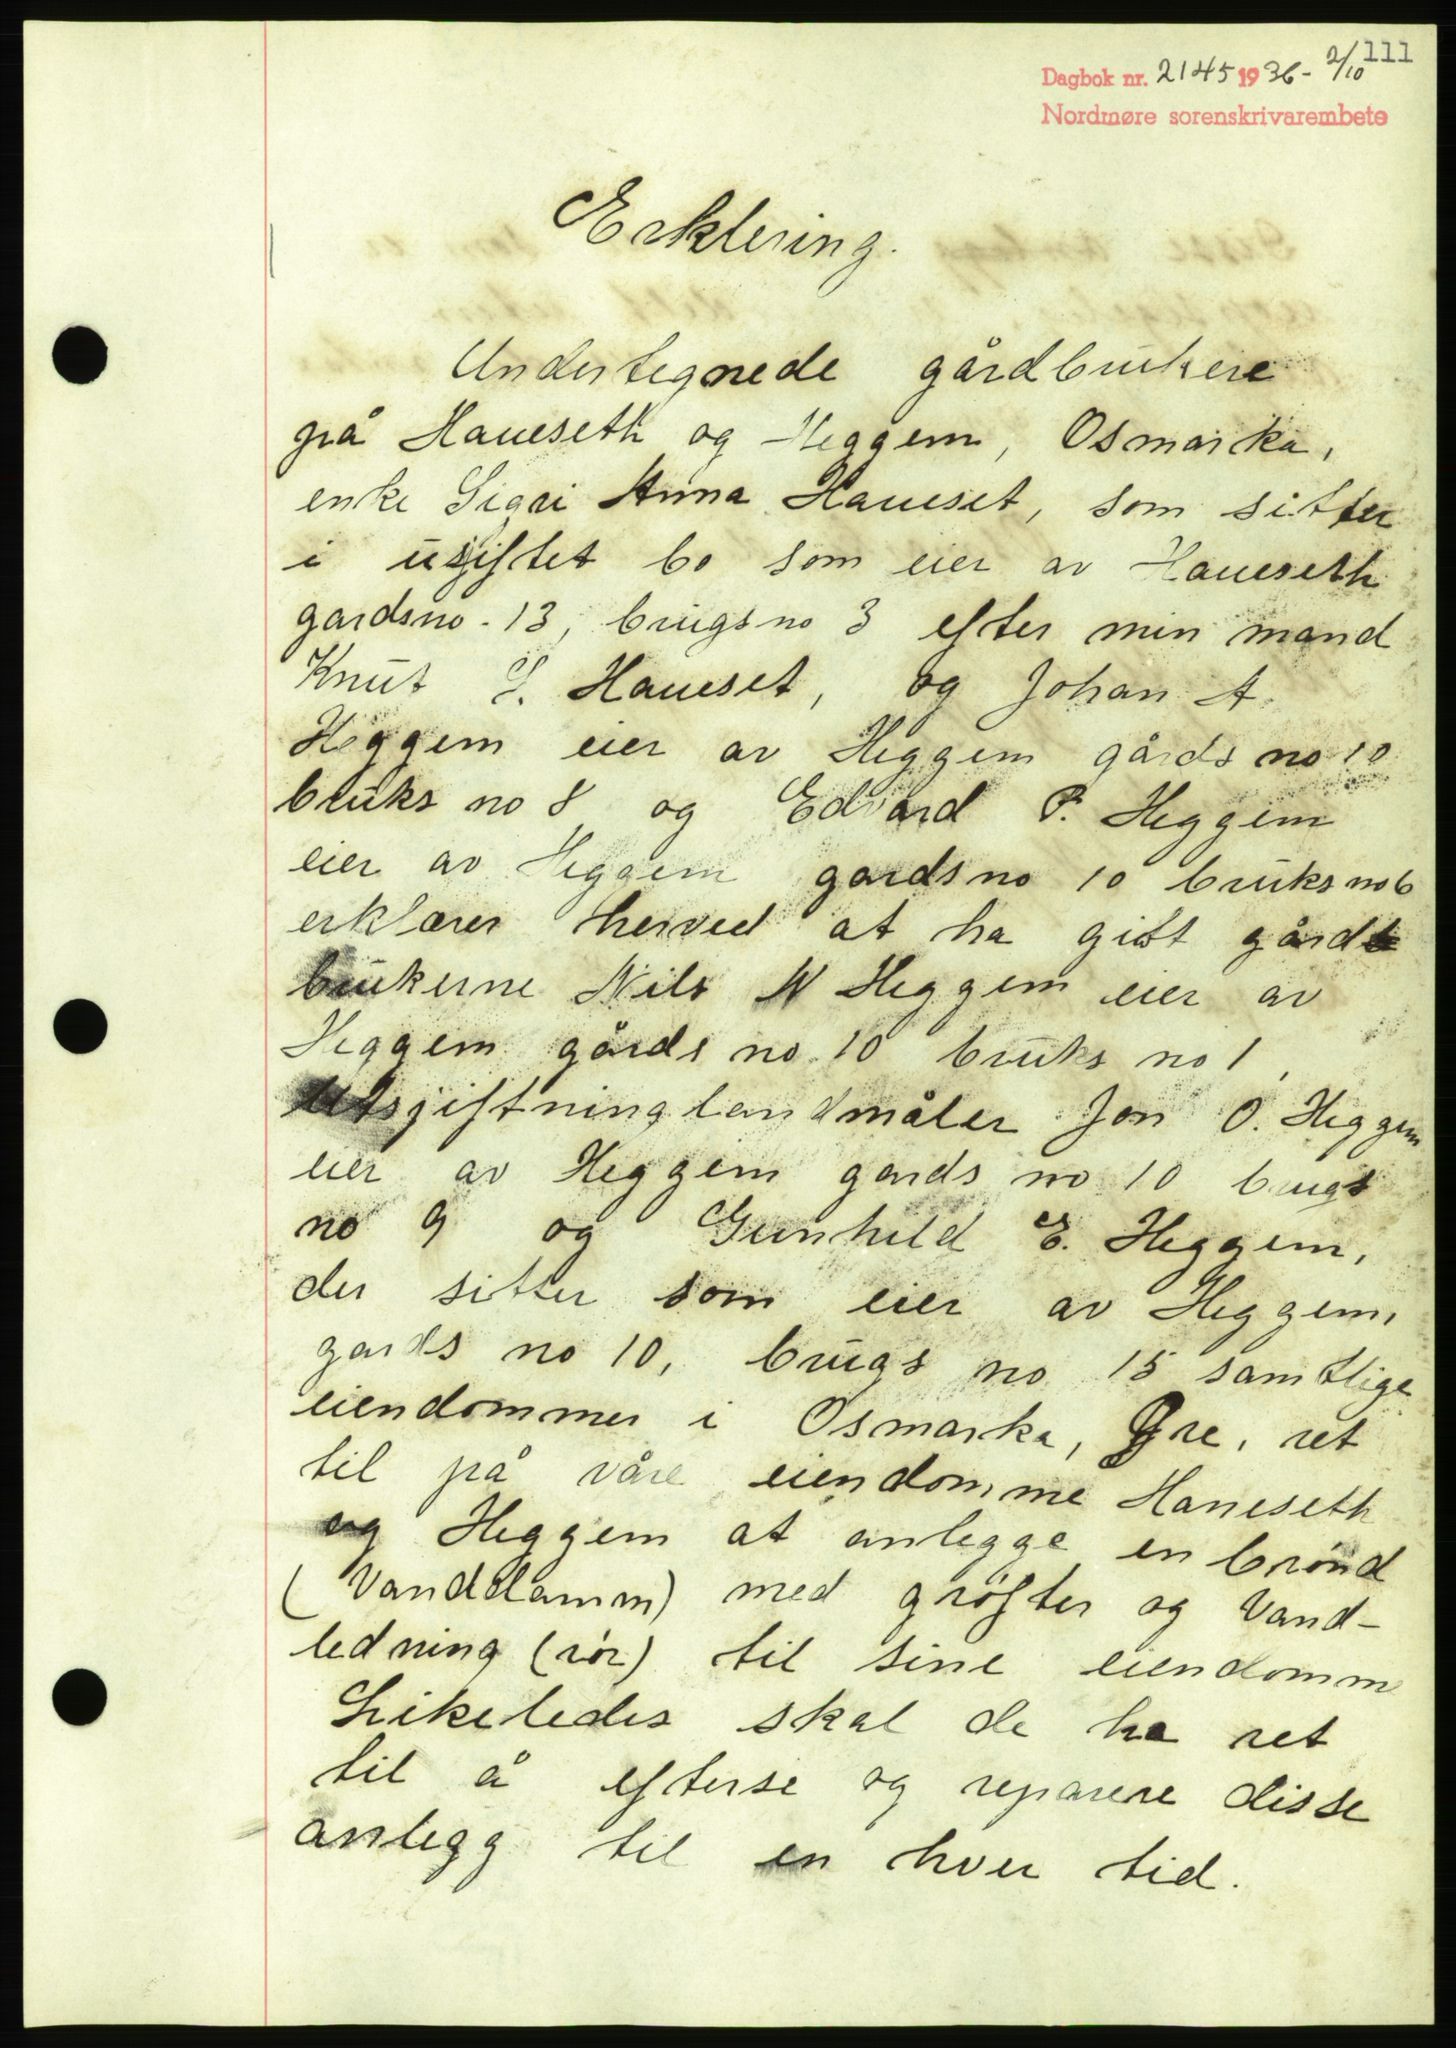 111
Dagbok nr. 2145 1936 - 2/10
Nordmøre sorenskrivarembete
Erklering.
Undertegnede gårdbrukere
på Haueseth og Heggem, Osmarka,
enke Sigri Anna Haueset, som sitter
i usjiftet bo som eier av Haueseth
gardsno. 13, brugsno 3 efter min mand
Knut S. Haueset, og Johan A.
Heggem eier av Heggem gårds no 10
bruks no 8 og Edvard P. Heggem
eier av Heggem gardsno 10 bruks no 6
erklærer herved at ha gitt gård
brukerne Nils N Heggem eier av
Heggem gårds no 10 bruks no 1,
Utsjiftninglandmåler Jon O. Heggem
eier av Heggem gards no 10 brugs
no 9 og Gunhild E. Heggem,
der sitter som eier av Heggem,
gards no 10, brugs no 15 samtlige
eiendommer i Osmarka, Øre, ret
til på våre eiendomme Haueseth
og Heggem at anlegge en brønd
(Vanddamm) med grøfter og Vand-
ledning (rør) til sine eiendomme
Likeledes skal de ha ret
til å efterse og reparere disse
anlegg til en hver tid.